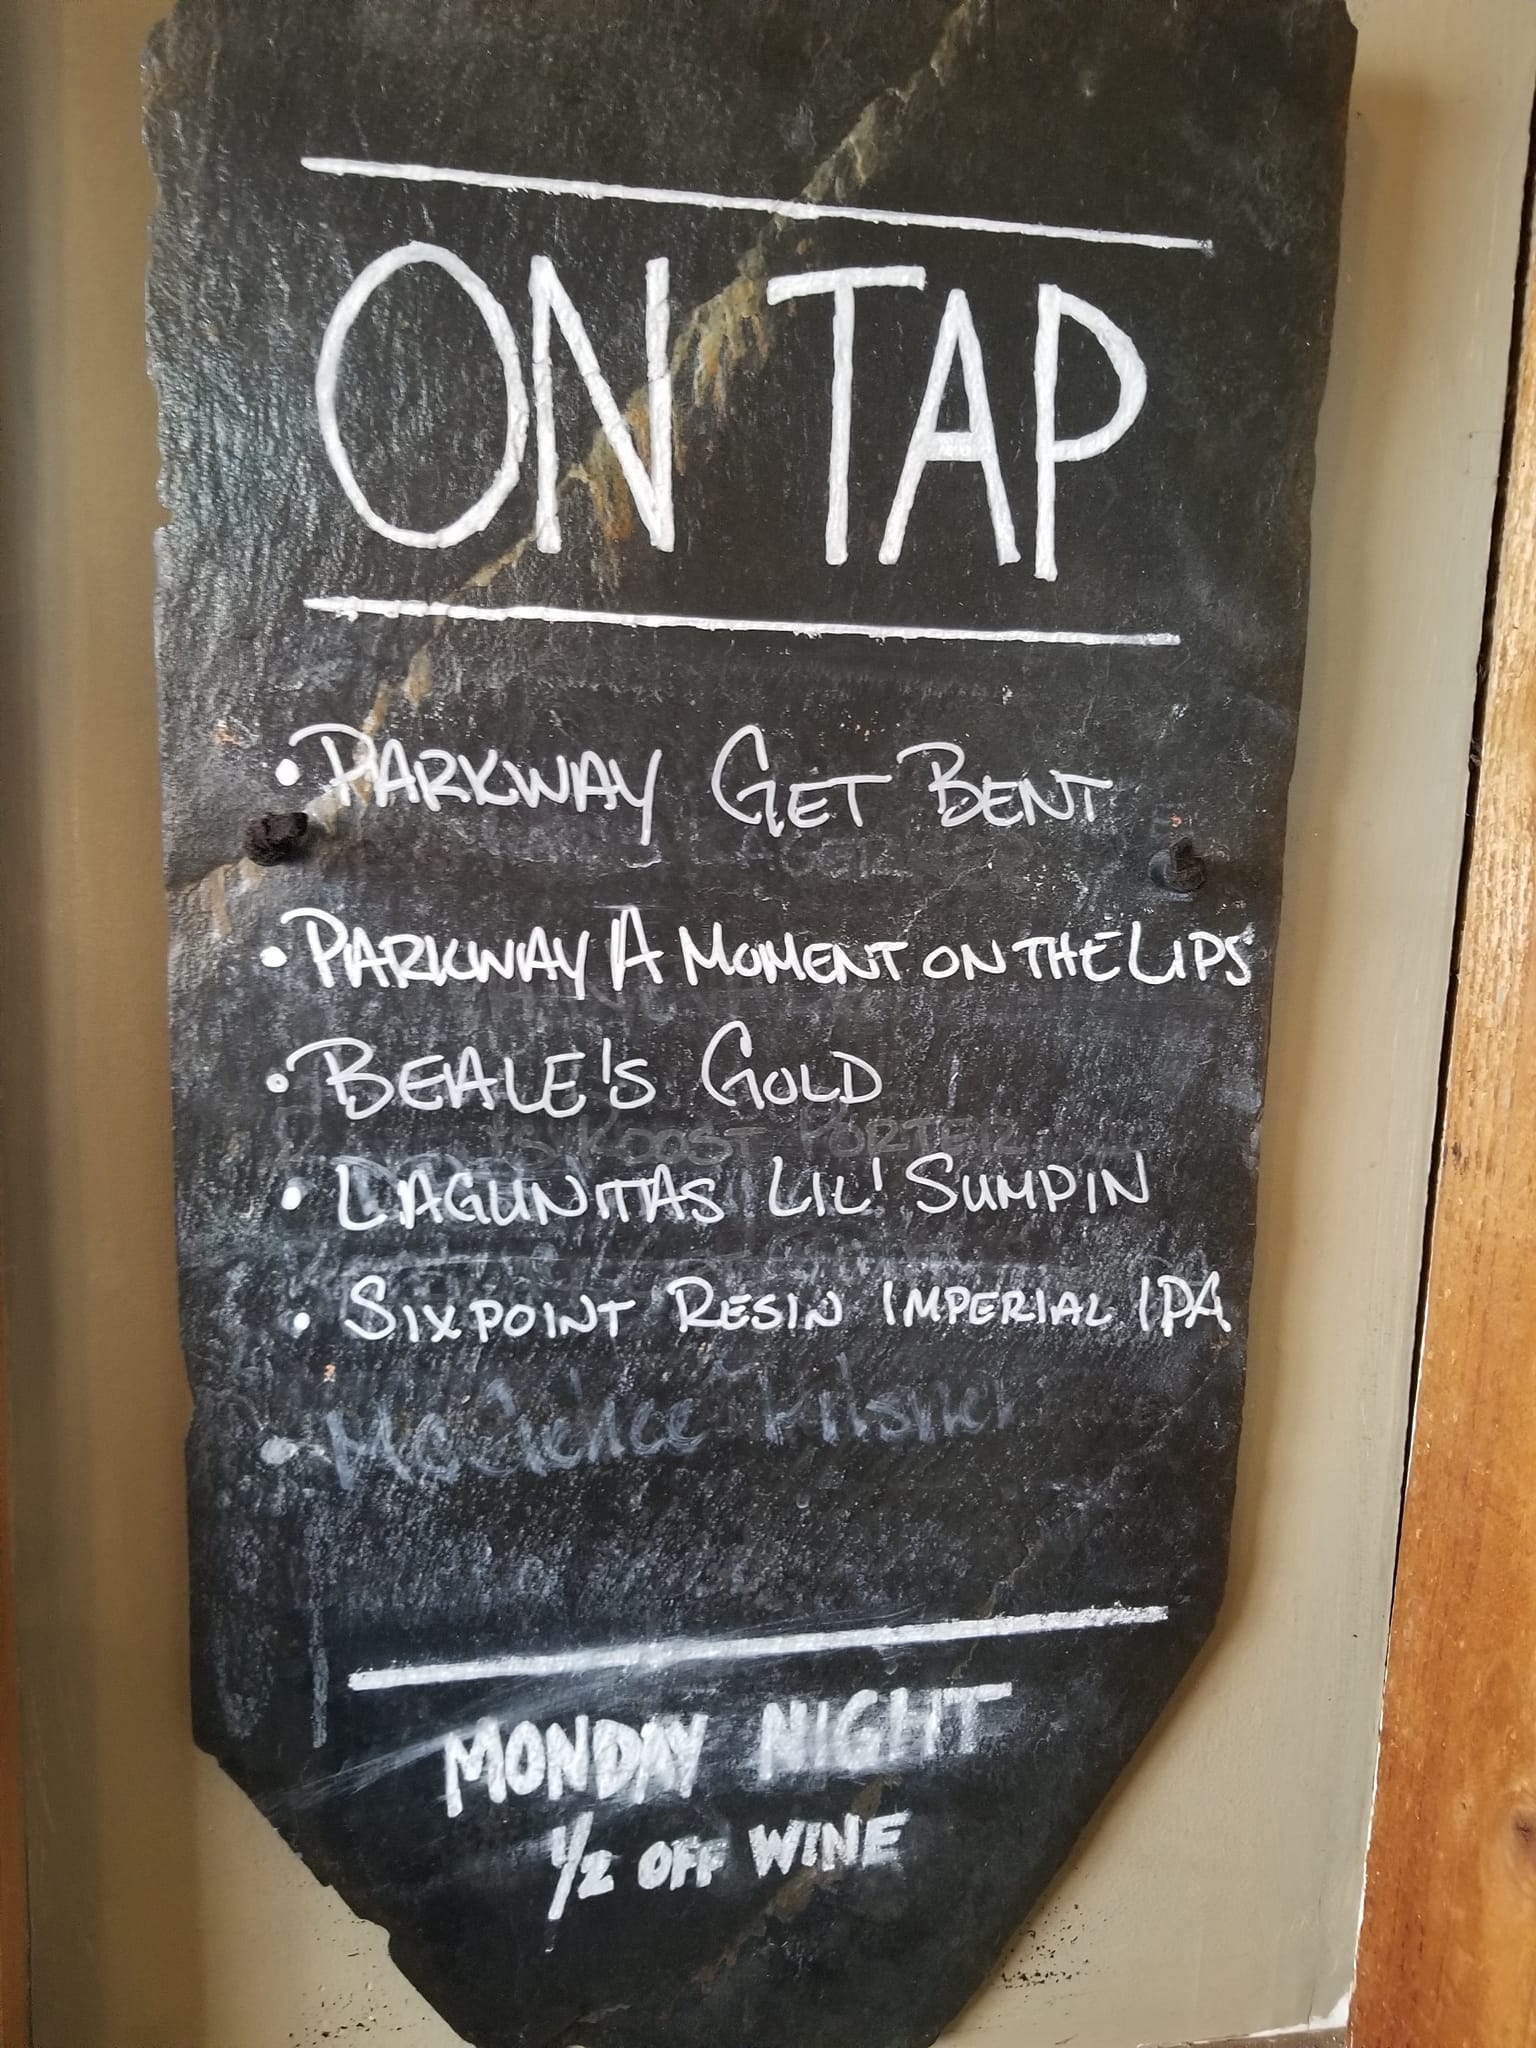 ON TAP
• PARKWAY GET BENT
• PARKWAY / A MOMENT ON THE LIPS
• BEALE'S GOLD
PORTER
• LAGUNITAS LIL' SUMPIN
• SIXPOINT RESIN IMPERIAL IPA
• Pilsner
MONDAY NIGHT
1/2 OFF WINE